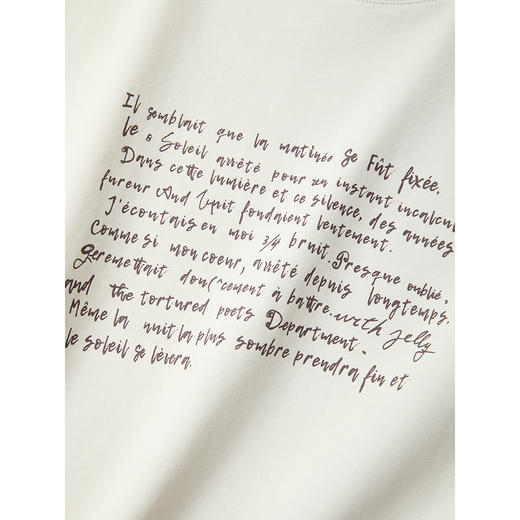 Il semblait que la matinée se Fût fixée.
le o Soleil arrêté pour un instant incalcul
Dans cette lumière et ce silence, des années
fureur And fondaient lentement.
J'écoutais en moi 3/4 bruit. Presque oublié,
Comme si mon coeur, arrêté depuis longtemps,
geremettait don(^cement à battre. with jelly
and the tortured poets Department.
Même la nuit la plus sombre prendra fin et
le soleil se lèvera.